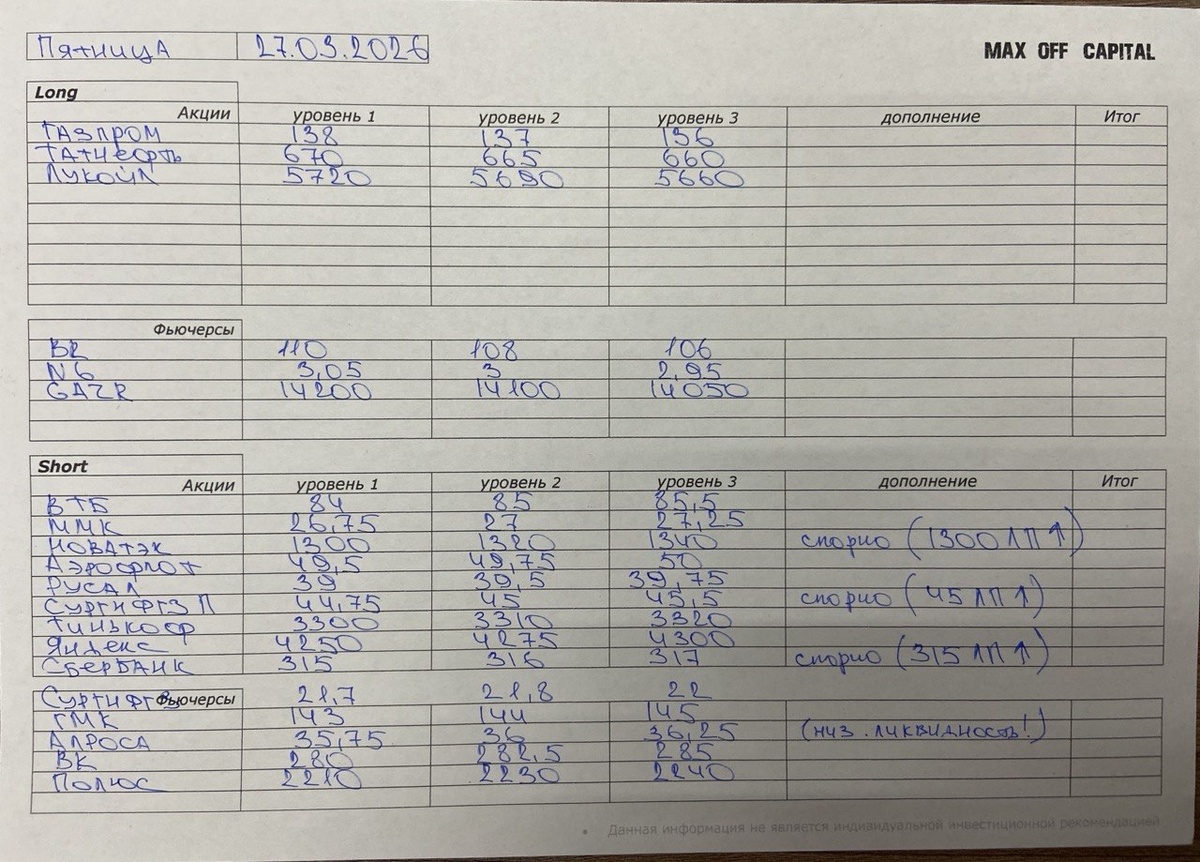 Пятница 27.03.2026 MAX OFF CAPITAL
Long
Акции уровень 1 уровень 2 уровень 3 дополнение Итог
ГАЗПРОМ 138 137 136
ТАТНефть 670 665 660
ЛУКОЙЛ 5720 5690 5660
Фьючерсы
BR 110 108 106
NG 3,05 3 2,95
GAZR 14200 14100 14050
Short
Акции уровень 1 уровень 2 уровень 3 дополнение Итог
ВТБ 84 85 85,5
ММК 26,75 27 27,25
НОВАТЭК 1300 1320 1340 спорно (1300 ЛП ↑)
Аэрофлот 49,5 49,75 50
РУСАЛ 39 39,5 39,75
Сургнфгз П 44,75 45 45,5 спорно (45 ЛП ↑)
Тинькофф 3300 3310 3320
Яндекс 4250 4275 4300
Сбербанк 315 316 317 спорно (315 ЛП ↑)
Сургнфгз 21,7 21,8 22
Фьючерсы
ГМК 143 144 145
АЛРОСА 35,75 36 36,25 (низ. ликвидность!)
ВК 280 282,5 285
Полюс 2210 2230 2240
• Данная информация не является индивидуальной инвестиционной рекомендацией